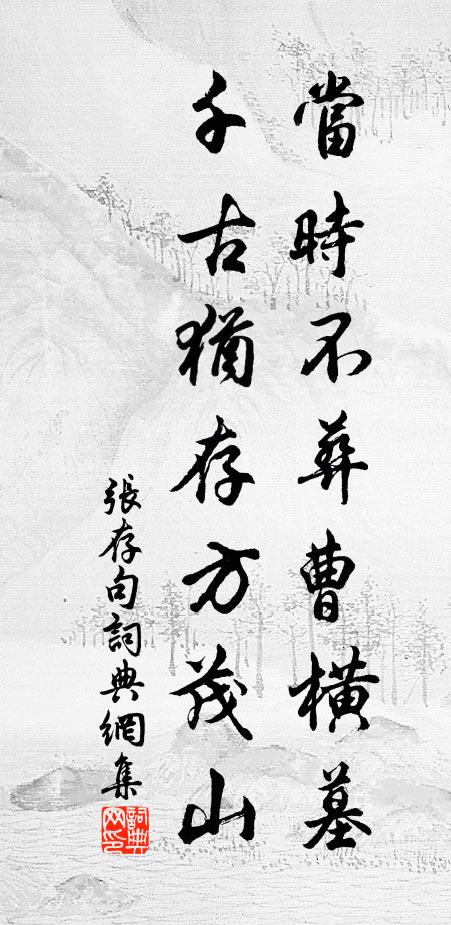 當時不葬曹橫墓
千古猶存方茂山
張存句詞典網集
詞典网印